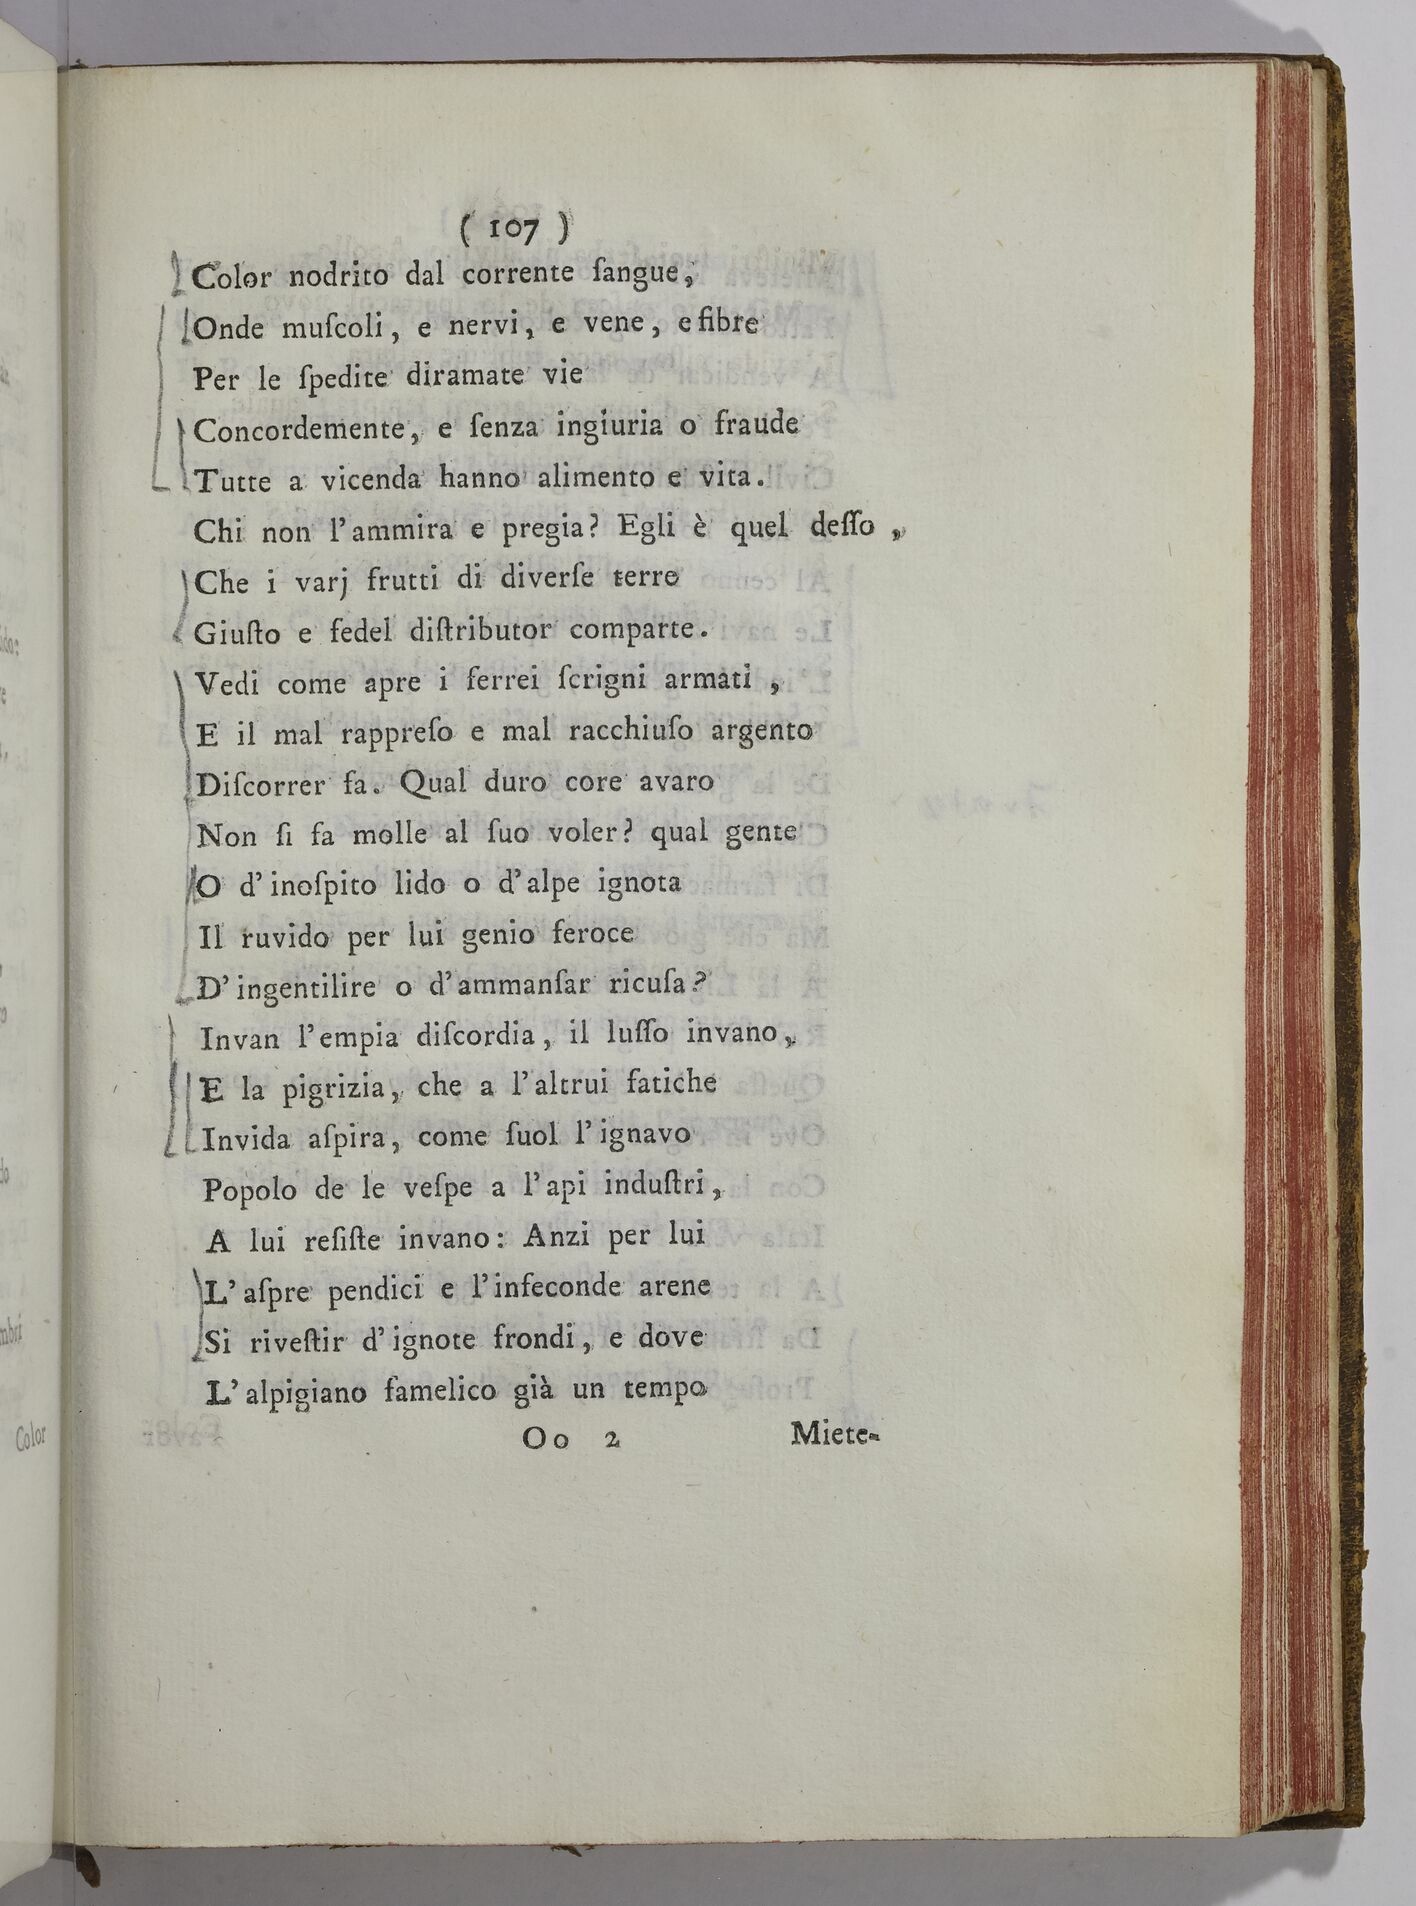 ( 107 )
Color nodrito dal corrente ſangue,
Onde muſcoli, e nervi, e vene, e fibre
Per le ſpedite diramate vie
Concordemente, e ſenza ingiuria o fraude
Tutte a vicenda hanno alimento e vita.
Chi non l'ammira e pregia? Egli è quel deſſo,
Che i varj frutti di diverſe terre
Giuſto e fedel diſtributor comparte.
Vedi come apre i ferrei ſcrigni armati,
E il mal rappreſo e mal racchiuſo argento
Diſcorrer fa. Qual duro core avaro
Non ſi fa molle al ſuo voler? qual gente
O d'inoſpito lido o d'alpe ignota
Il ruvido per lui genio feroce
D'ingentilire o d'ammanſar ricuſa?
Invan l'empia diſcordia, il luſſo invano,
E la pigrizia, che a l'altrui fatiche
Invida aſpira, come ſuol l'ignavo
Popolo de le veſpe a l'api induſtri,
A lui reſiſte invano: Anzi per lui
L'aſpre pendici e l'infeconde arene
Si riveſtir d'ignote frondi, e dove
L'alpigiano famelico già un tempo
Oo 2 Miete-
Color